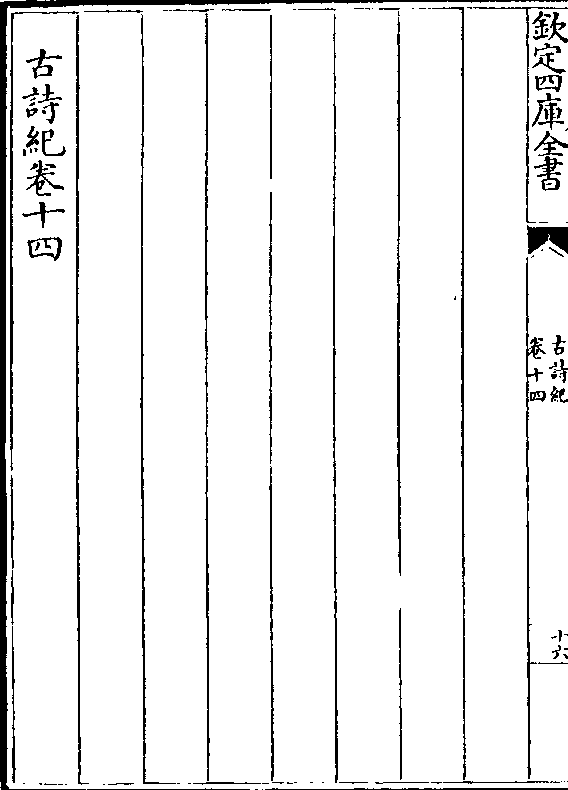 欽定四庫全書
古詩紀
卷十四
十六
古詩紀卷十四